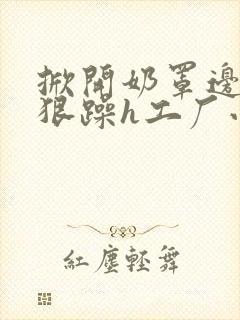 掀開奶罩邊
狠躁h工厂
紅塵輕舞